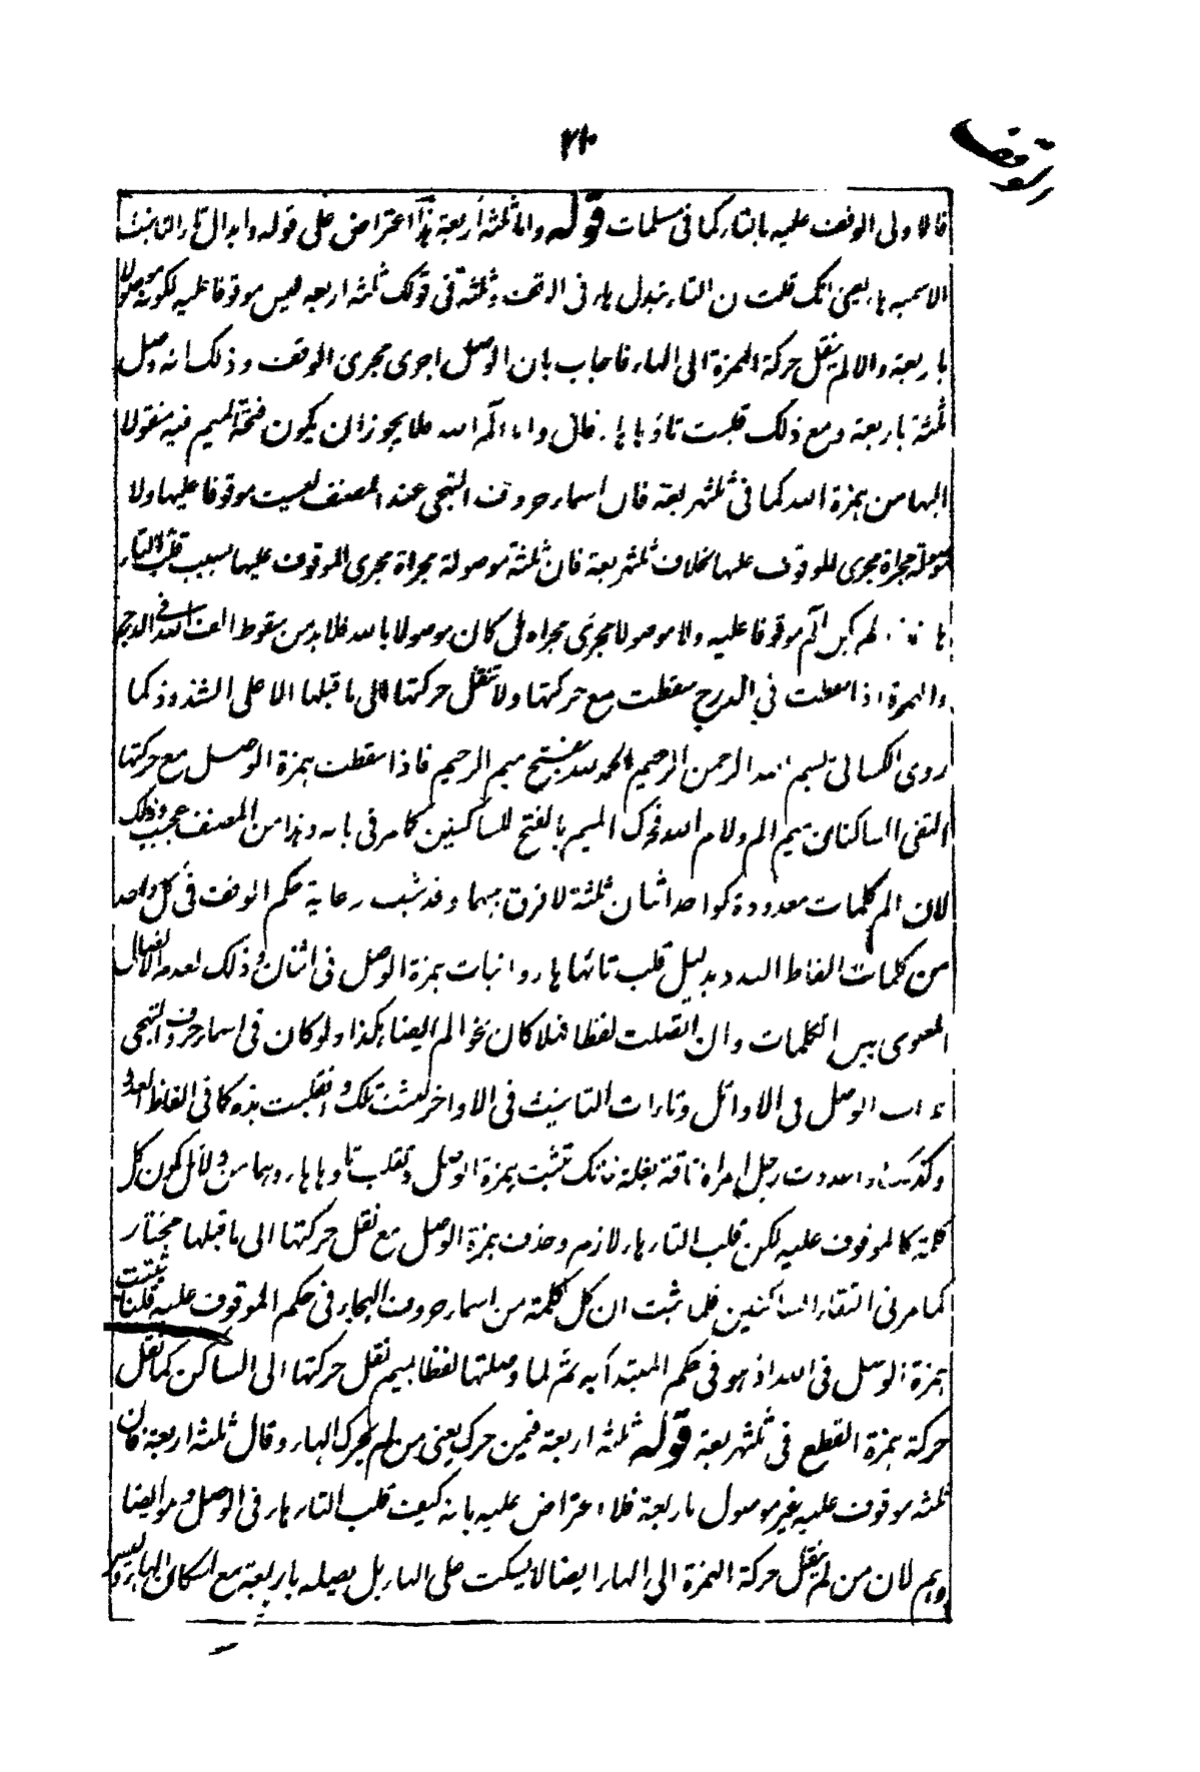 الوقف
٢١٠
فالاولى الوقف عليه بالتاء كما فى مسلمات قوله واما ثلثة اربعة هذا اعتراض على قوله وابدال تاء التانيث
الاسمية هاء يعنى انك قلت ان التاء تبدل هاء فى الوقف وثلثة فى قولك ثلثة اربعة ليس موقوفا عليه لكونه موصولا
باربعة والا لم ينقل حركة الهمزة الى الهاء فاجاب بان الوصل اجرى مجرى الوقف وذلك انه وصل
ثلثة باربعة ومع ذلك قلبت تاؤها هاء قال واما الم الله فلا يجوز ان يكون فتحة الميم فيه منقولا
اليها من همزة الله كما فى ثلثهربعة فان اسماء حروف التهجى عند المصنف ليست موقوفا عليها ولا
موصولة مجراة مجرى الموقوف عليها بخلاف ثلثهربعة فان ثلثة موصولة مجراة مجرى الموقوف عليها بسبب قلب التاء
هاء لم يكن الم موقوفا عليه ولا موصولا مجرى مجراه بل كان موصولا بالله فلا بد من سقوط الف الله فى الدرج
والهمزة اذا سقطت فى الدرج سقطت مع حركتها ولا تنقل حركتها الى ما قبلها الا على الشذوذ كما
روى الكسائى بسم الله الرحمن الرحيم الحمد لله بفتح ميم الرحيم فاذا سقطت همزة الوصل مع حركتها
التقى الساكنان ميم الم ولام الله فحرك الميم بالفتح للساكنين كما مر فى بابه وهذا من المصنف عجيب وذلك
لان الم كلمات معدودة كواحد اثنان ثلثة لا فرق بينهما وقد ثبت رعاية حكم الوقف فى كل واحد
من كلمات الفاظ العدد بدليل قلب تائها هاء واثبات همزة الوصل فى اثنان وذلك لعدم الاتصال
المعنوى بين الكلمات وان اتصلت لفظا فهلا كان نحو الم ايضا هكذا ولو كان فى اسماء حروف التهجى
همزات الوصل فى الاوائل وتاءات التانيث فى الاواخر لثبتت تلك وانقلبت هذه كما فى الفاظ العدد
وكذلك اذا عددت رجل امراة ناقة بغلة فانك تثبت همزة الوصل وتقلب التاء هاء وهما من دلائل كون كل
كلمة كالموقوف عليه لكن قلب التاء هاء لازم وحذف همزة الوصل مع نقل حركتها الى ما قبلها مختار
كما مر فى التقاء الساكنين فلما ثبت ان كل كلمة من اسماء حروف الهجاء فى حكم الموقوف عليه قلنا ثبتت
همزة الوصل فى الله اذ هو فى حكم المبتدأ به ثم لما وصلتها لفظا بميم نقل حركتها الى الساكن كما نقل
حركة همزة القطع فى ثلثهربعة قوله ثلثه اربعة فيمن حرك يعنى من لم يحرك الهاء وقال ثلثه اربعة فان
ثلثه موقوف عليه غير موصول باربعة فلا اعتراض عليه بانه كيف قلب التاء هاء فى الوصل وهو ايضا
وهم لان من لم ينقل حركة الهمزة الى الهاء ايضا لا يسكت على الهاء بل يصله باربعة مع اسكان الهاء وليس